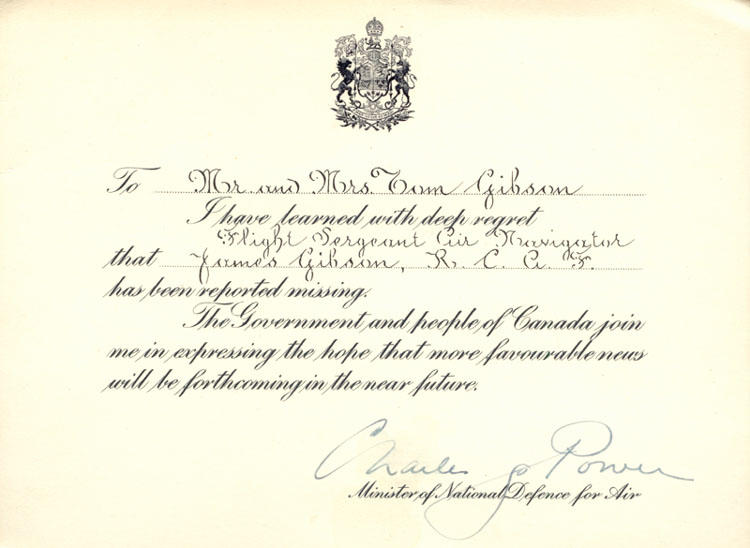 To Mr. and Mrs. Tom Gibson
I have learned with deep regret
Flight Sergeant Air Navigator
that James Gibson, R. C. A. F.
has been reported missing.
The Government and people of Canada join
me in expressing the hope that more favourable news
will be forthcoming in the near future.
Charles G Power
Minister of National Defence for Air